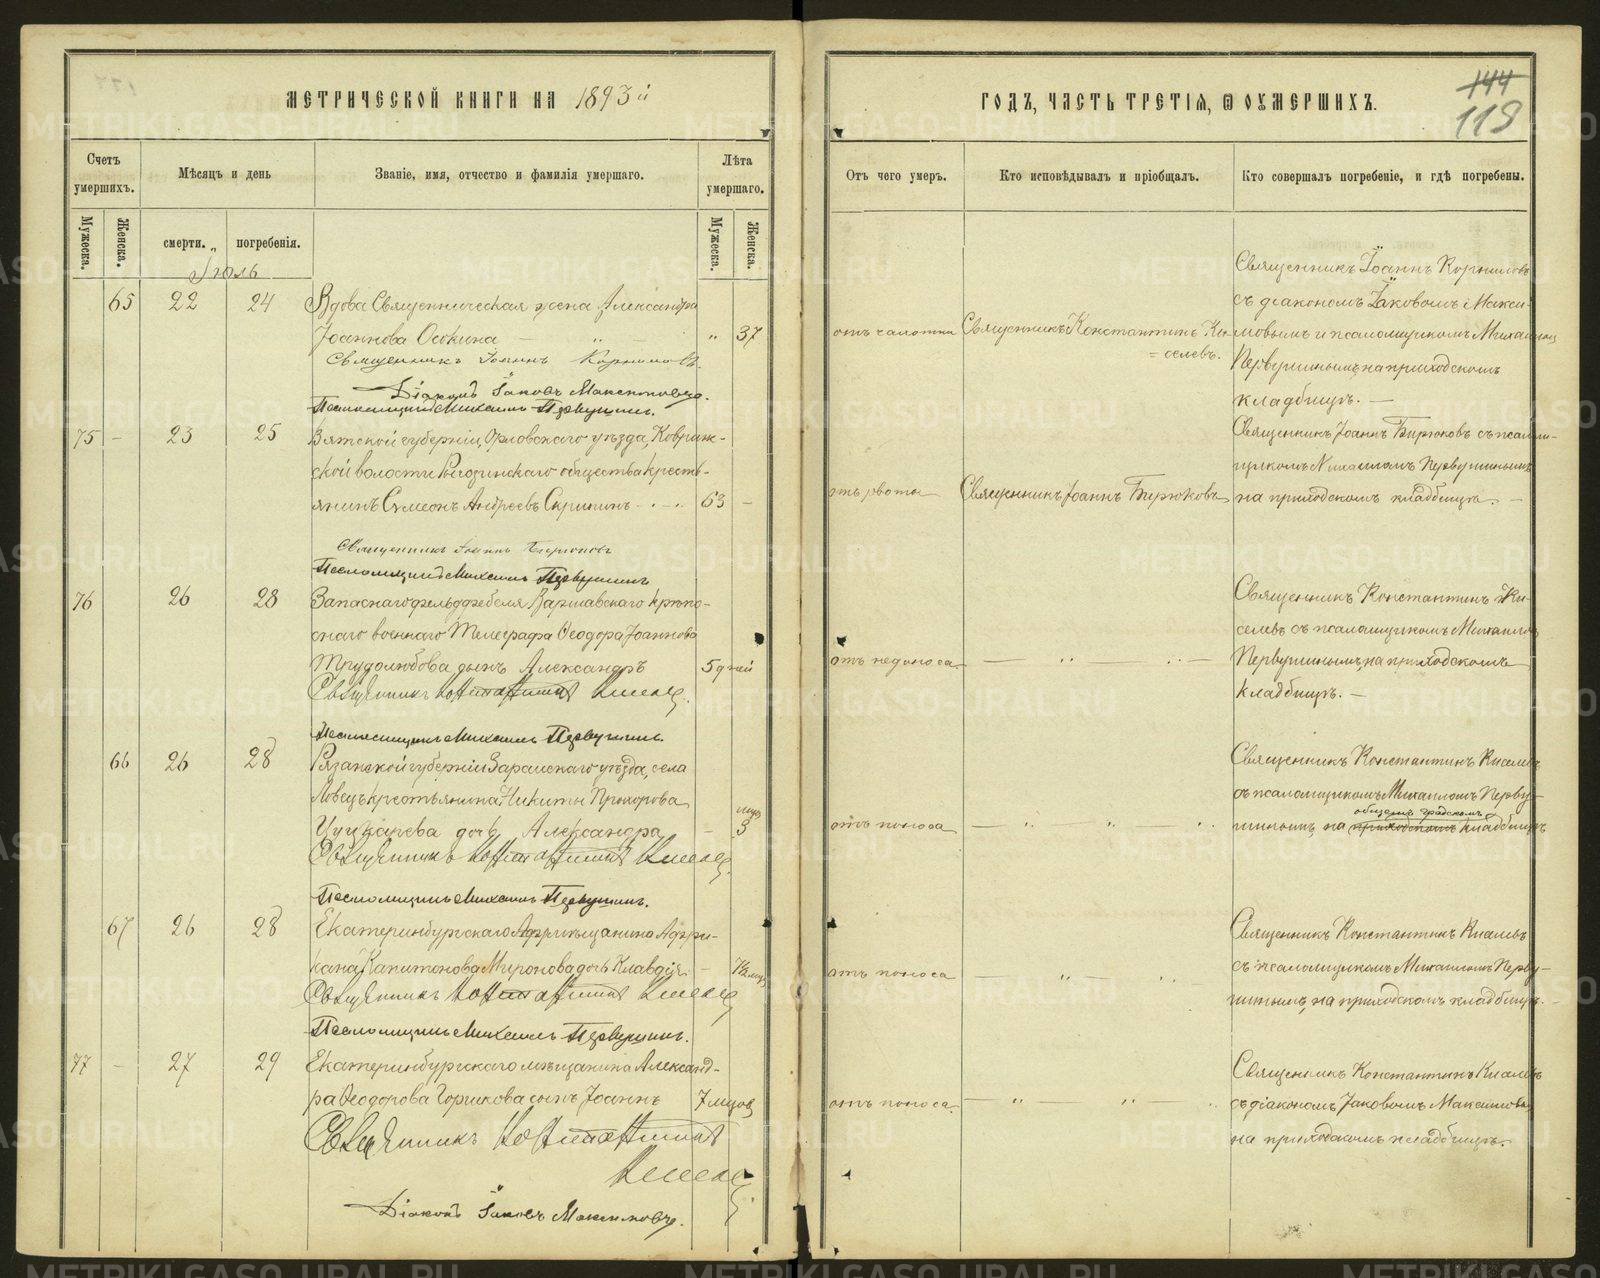 МЕТРИЧЕСКОЙ КНИГИ НА 1893й
ГОДЪ, ЧАСТЬ ТРЕТІЯ, Ѿ ОУМЕРШИХЪ.
144
118
Счетъ умершихъ.
Мѣсяцъ и день
Званіе, имя, отчество и фамилія умершаго.
Лѣта умершаго.
Отъ чего умеръ.
Кто исповѣдывалъ и пріобщалъ.
Кто совершалъ погребеніе, и гдѣ погребены.
Мужеска.
Женска.
смерти.
погребенія.
Мужеска.
Женска.
Іюль
65
22
24
Вдова Священническая жена Александра
Іоаннова Оскина
37
отъ чахотки
Священникъ Константинъ Ки=
=селевъ.
Священникъ Іоаннъ Корниловъ
съ діакономъ Іаковомъ Макси-
мовымъ и псаломщикомъ Михаиломъ
Первушинымъ, на приходскомъ
кладбищѣ. —
Священникъ Іоаннъ Корниловъ.
Діаконъ Іаковъ Максимовъ.
Псаломщикъ Михаилъ Первушинъ.
75
23
25
Вятской губерніи, Орловскаго уѣзда,
ской волости общества кресть-
янинъ Сѵмеонъ Андреевъ Скрипинъ
63
отъ рвоты
Священникъ Іоаннъ Бирюковъ
Священникъ Іоаннъ Бирюковъ съ псалом-
щикомъ Михаиломъ Первушинымъ
на приходскомъ кладбищѣ. —
Священникъ Іоаннъ Бирюковъ
Псаломщикъ Михаилъ Первушинъ
76
26
28
Запаснаго фельдфебеля Варшавскаго крѣпо-
снаго военнаго Телеграфа Ѳеодора Іоаннова
Трудолюбова сынъ Александръ
5 дней
отъ недоноса
Священникъ Константинъ Ки-
селевъ съ псаломщикомъ Михаиломъ
Первушинымъ, на приходскомъ
кладбищѣ. —
Священникъ Константинъ Киселевъ.
Псаломщикъ Михаилъ Первушинъ.
66
26
28
Рязанской губерніи Зарайскаго уѣзда, села
Ловецъ крестьянина Никиты Прохорова
дочь Александра
3 мца
отъ поноса
Священникъ Константинъ Киселевъ
съ псаломщикомъ Михаиломъ Перву-
общемъ градскомъ
шинымъ, на приходскомъ кладбищѣ
Священникъ Константинъ Киселевъ.
Псаломщикъ Михаилъ Первушинъ.
67
26
28
Екатеринбургскаго мѣщанина Афри-
кана Капитонова Миронова дочь Клавдія
отъ поноса
Священникъ Константинъ Киселевъ
съ псаломщикомъ Михаиломъ Перву-
шинымъ, на приходскомъ кладбищѣ. —
Священникъ Константинъ Киселевъ
Псаломщикъ Михаилъ Первушинъ.
77
27
29
Екатеринбургскаго мѣщанина Александ-
ра Ѳеодорова Горшкова сынъ Іоаннъ
7 мцовъ
отъ поноса.
Священникъ Константинъ Киселевъ
съ діакономъ Іаковомъ Максимовымъ
на приходскомъ кладбищѣ.
Священникъ Константинъ
Киселевъ
Діаконъ Іаковъ Максимовъ.
METRIKI.GASO-URAL.RU